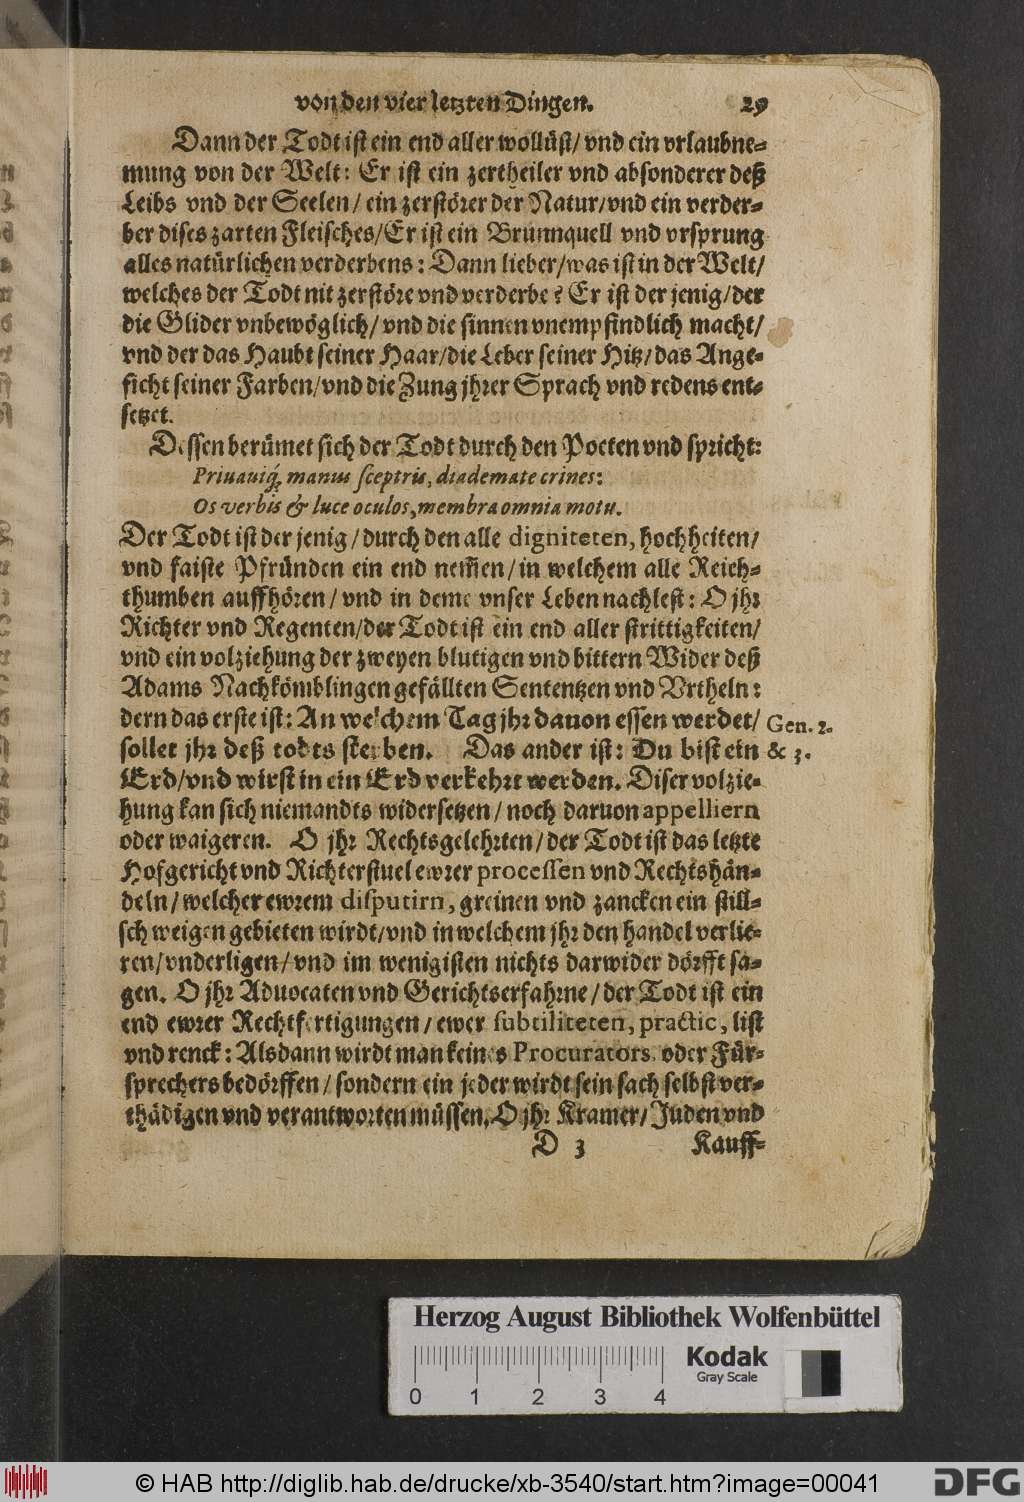 von den vier letzten Dingen. 29
Dann der Todt ist ein end aller wollüst/ vnd ein vrlaubne-
mung von der Welt: Er ist ein zertheiler vnd absonderer deß
Leibs vnd der Seelen/ ein zerstörer der Natur/vnd ein verder-
ber dises zarten Fleisches/Er ist ein Brunnquell vnd vrsprung
alles natürlichen verderbens: Dann lieber/was ist in der Welt/
welches der Todt nit zerstöre vnd verderbe? Er ist der jenig/der
die Glider vnbewöglich/ vnd die sinnen vnempfindlich macht/
vnd der das Haubt seiner Haar/die Leber seiner Hitz/das Ange-
sicht seiner Farben/vnd die Zung jhrer Sprach vnd redens ent-
setzet.
Dessen berümet sich der Todt durch den Poeten vnd spricht:
Priuauiq́; manus sceptris, diademate crines:
Os verbis & luce oculos, membra omnia motu.
Der Todt ist der jenig/durch den alle digniteten, hochheiten/
vnd faiste Pfründen ein end nem̃en/in welchem alle Reich-
thumben auffhören/ vnd in deme vnser Leben nachlest: O jhr
Richter vnd Regenten/der Todt ist ein end aller strittigkeiten/
vnd ein volziehung der zweyen blutigen vnd bittern Wider deß
Adams Nachkömblingen gefällten Sententzen vnd Vrtheln:
dern das erste ist: An welchem Tag jhr dauon essen werdet/ Gen. 2.
sollet jhr deß todts sterben. Das ander ist: Du bist ein & 3.
Erd/vnd wirst in ein Erd verkehrt werden. Diser volzie-
hung kan sich niemandts widersetzen/ noch daruon appelliern
oder waigeren. O jhr Rechtsgelehrten/der Todt ist das letzte
Hofgericht vnd Richterstuel ewrer processen vnd Rechtshän-
deln/welcher ewrem disputirn, greinen vnd zancken ein still-
schweigen gebieten wirdt/vnd in welchem jhr den handel verlie-
ren/vnderligen/ vnd im wenigisten nichts darwider dörfft sa-
gen. O jhr Aduocaten vnd Gerichtserfahrne/der Todt ist ein
end ewrer Rechtfertigungen/ewer subtiliteten, practic, list
vnd renck: Alsdann wirdt man keines Procurators, oder Für-
sprechers bedörffen/ sondern ein jeder wirdt sein sach selbst ver-
thädigen vnd verantworten müssen. O jhr Kramer/Juden vnd
D 3 Kauff-
Herzog August Bibliothek Wolfenbüttel
Kodak
Gray Scale
0 1 2 3 4
© HAB http://diglib.hab.de/drucke/xb-3540/start.htm?image=00041
DFG